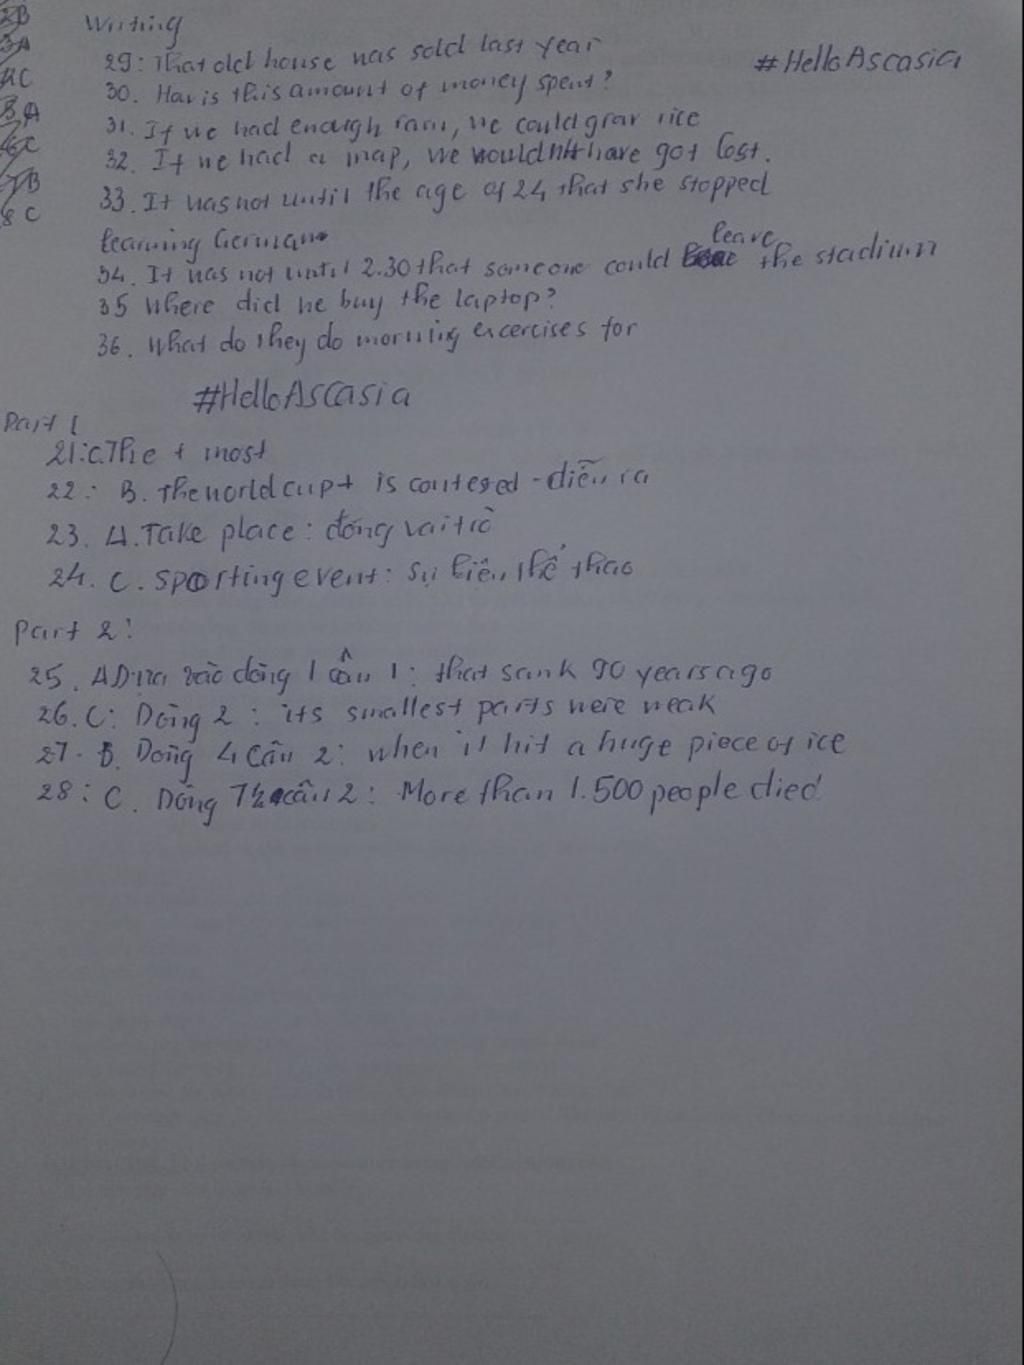 2B
3A
4C
5A
6C
7B
8C
Writing
29: That old house was sold last year
#HelloAscasia
30. How is this amount of money spent?
31. If we had enough rain, we could grow rice
32. If we had a map, we wouldn't have got lost.
33. It was not until the age of 24 that she stopped
learning German
leave
34. It was not until 2.30 that someone could the stadium
35 Where did he buy the laptop?
36. What do they do morning excercises for
#HelloAscasia
Part 1
21: C. The + most
22: B. The world cup + is - diễn ra
23. A. Take place: đóng vai trò
24. C. sporting event: sự kiện thể thao
Part 2:
25. A Dựa vào dòng 1 câu 1: that sank 90 years ago
26. C: Dòng 2: its smallest parts were weak
27. B. Dòng 4 Câu 2: when it hit a huge piece of ice
28: C. Dòng 7 câu 2: More than 1.500 people died